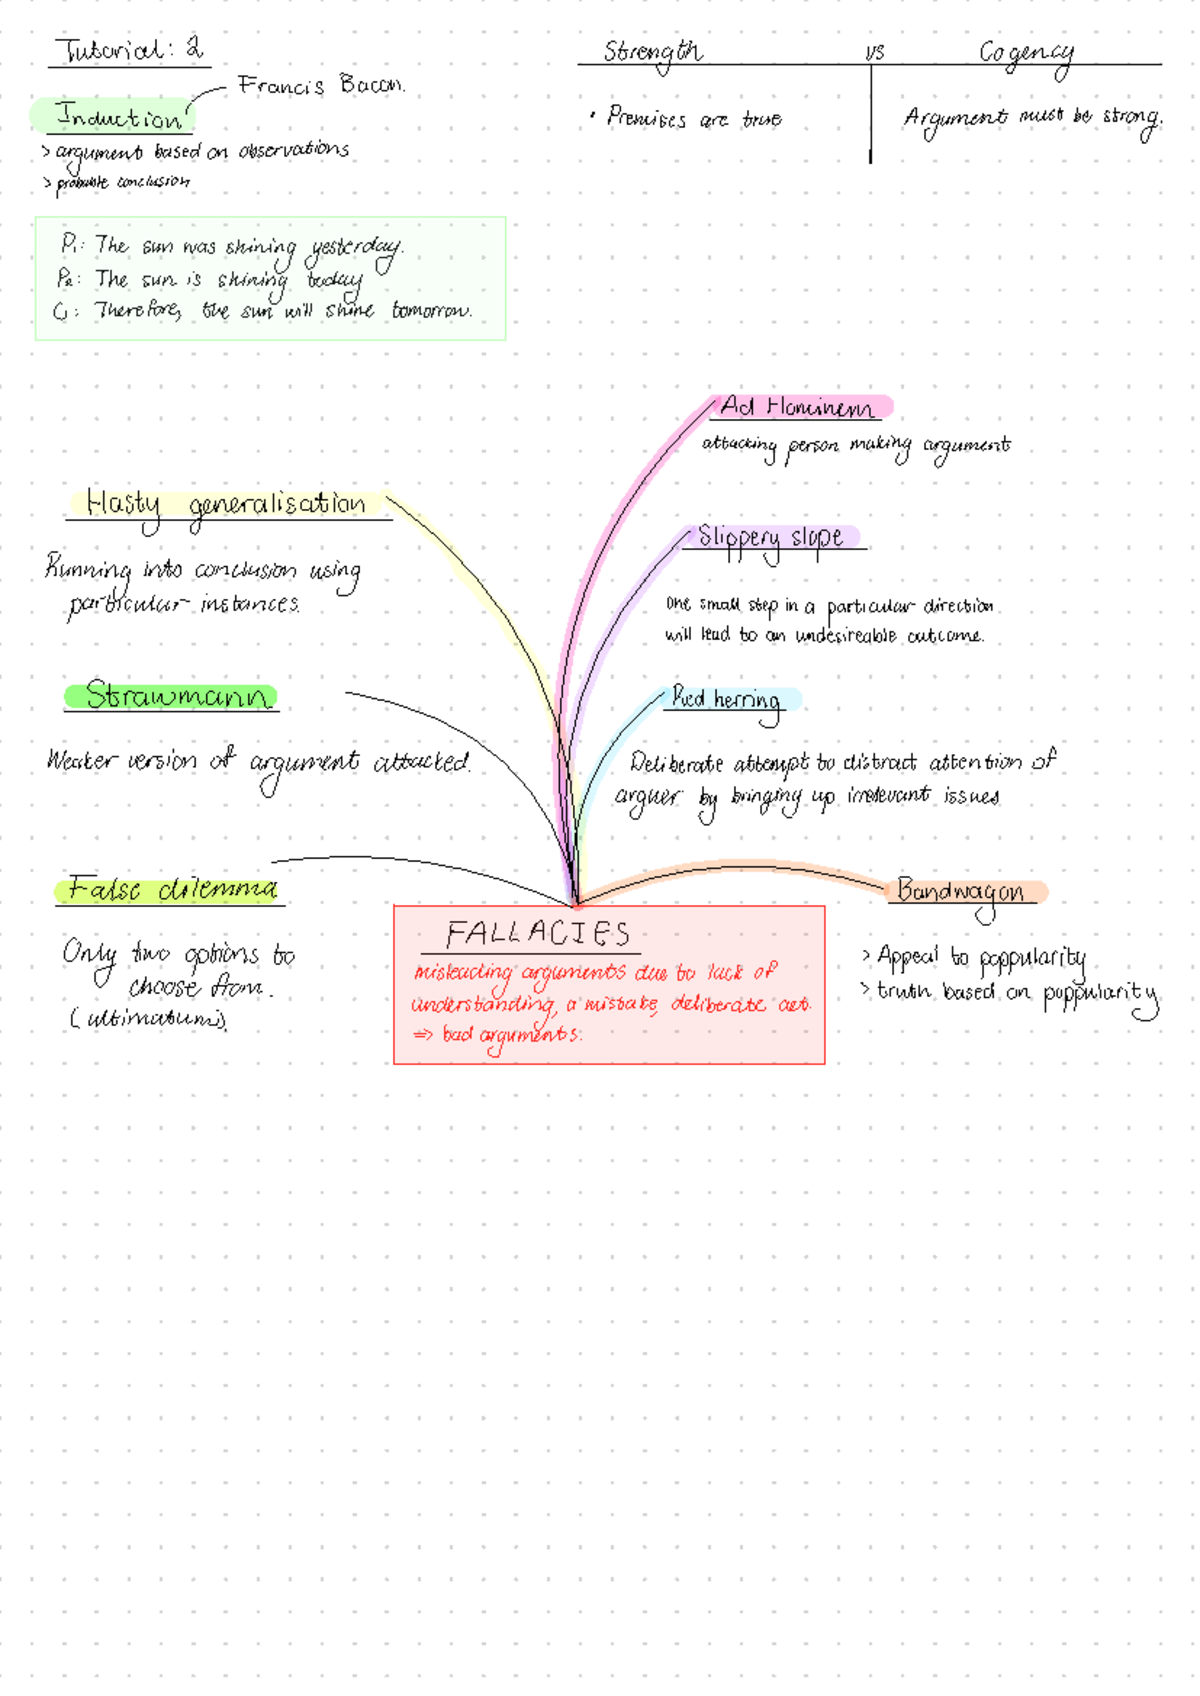 Tutorial: 2
Francis Bacon.
Induction
> argument based on observations
> probable conclusion
P1: The sun was shining yesterday.
P2: The sun is shining today
C1: Therefore, the sun will shine tomorrow.
Strength vs Cogency
• Premises are true
Argument must be strong.
Ad Hominem
attacking person making argument
Hasty generalisation
Running into conclusion using
particular instances.
Slippery slope
One small step in a particular direction
will lead to an undesireable outcome.
Strawmann
Weaker version of argument attacked.
Red herring
Deliberate attempt to distract attention of
arguer by bringing up irrelevant issues
False dilemma
Only two options to
choose from.
(ultimatums)
Bandwagon
> Appeal to poppularity
> truth based on poppularity
FALLACIES
misleading arguments due to lack of
understanding, a mistake, deliberate act.
=> bad arguments.